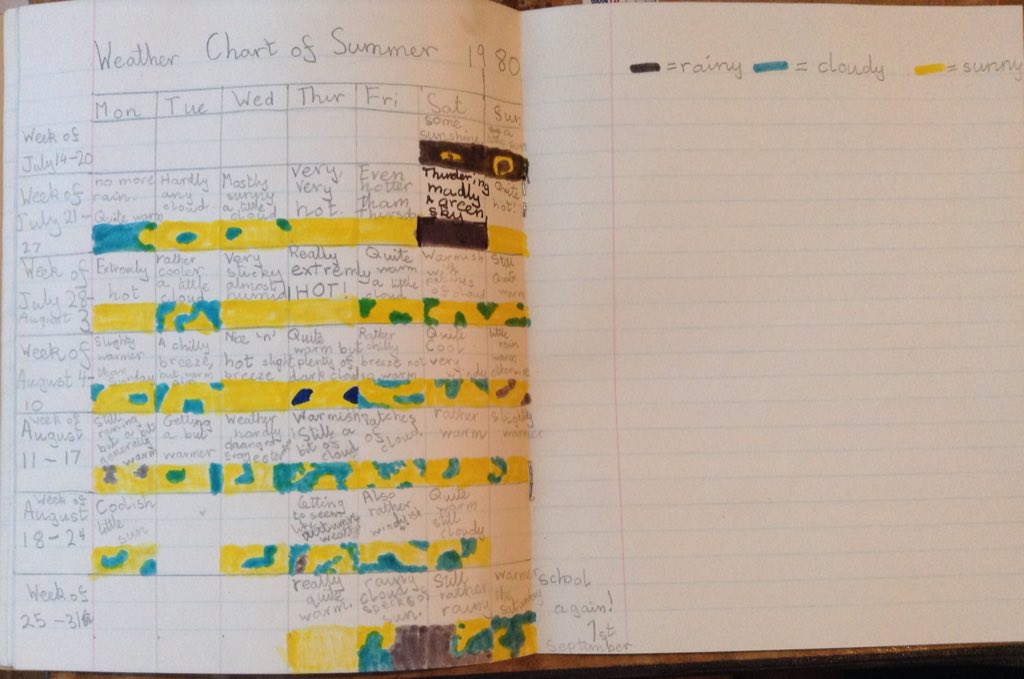 Weather Chart of Summer 1980
Mon Tue Wed Thur Fri Sat Sun
Week of
July 14-20
some
sunshine
a
little sun
Week of
July 21-
27
no more
rain.
Quite warm
Hardly
any
cloud.
Mostly
sunny
a little
cloud
Very,
very
hot
Even
hotter
tham
thursday
Thunder,ing
madly
A green
sky
Quite
hot!
Week of
July 28-
August 3
Extremly
hot
rather
cooler
a little
cloud
Very
sticky
almost
humid
Really
extremly
HOT!
Quite
warm
a little
cloud
Warmish
with
patches
of cloud
Still
Quite
warm
Week of
August 4-
10
Slighty
warmer
than
Sunday
A chilly
breeze,
but warm
Nice 'n'
hot slight
breeze
Quite
warm but
plenty of
dark clouds
Rather
chilly
breeze not
warm
Quite
Cool
very
windy
little
rain
warm
otherwise
Week of
August
11-17
Still
raining
but a bit
generally
warm
Getting
a but
warmer
Weather
hardly
changed
from yesterday
Warmish
Still a
bit of
cloud
Patches
of
cloud.
rather
warm
slightly
warmer
Week of
August
18-24
Coolish
little
sun
Getting
to seem
like
autumn
weather
Also
rather
windyish
Quite
warm
still
cloudy
Week of
25-31
really
quite
warm.
rainy
cloudy
specks of
sun.
Still
rather
rainy
warmer
than
saturday
school
again!
1st
September
=rainy = cloudy = sunny